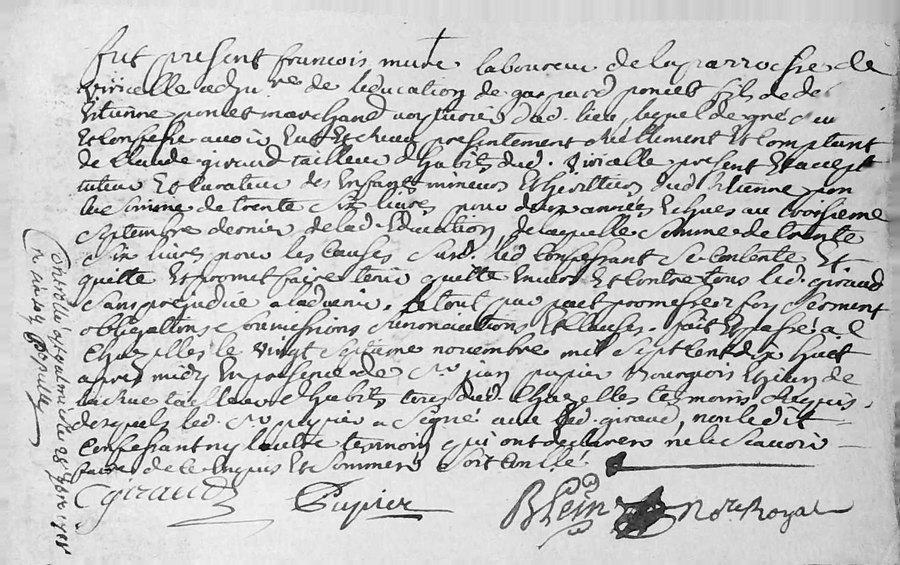 fut present francois mure laboureur de la parroche de
Viricelle adju^re de leducation de gaspard poncet fils de def
Etienne poncet marchand voyturier dud. lieu, lequel de gré a eu
Et confessé avoir Eu Et Receu presentement Reellement Et Comptant
de Claude giraud tailleur dhabits dud. Viricelle present Et accept
tuteur Et curateur des Enfans mineurs Et héritiers dud Etienne pon
la somme de trente Six livres pour deux années Echues au troisieme
Septembre dernier de lad. Education de laquelle Somme de trente
Six livres pour les Causes Susd. led Confessant Se Contente Et
quitte Et promet faire tenir quitte Envers Et Contre tous led. giraud
Sans prejudice a ladvenir. le tout par pact promesse foy Serment
obligations Soumissions Renonciations Et Clauses. fait Et passé a
Chazelles le vingt Septieme novembre mil Sept Cent dix huit
apres midy En presence de S^r. jean pupier Bourgeois Et jean de
la Rue tailleur dhabits tous dud. Chazelles tesmoins Requis
desquels led. S^r. pupier a Signé avec led. giraud, non ledit
Confessant ny lautre tesmoin qui ont declaré ne le Scavoir
faire de ce Enquis Et Sommés Soit Conllé
Cgiraud Pupier Blein No^re Royal
Controllé a St galmier le 28 9bre 1718